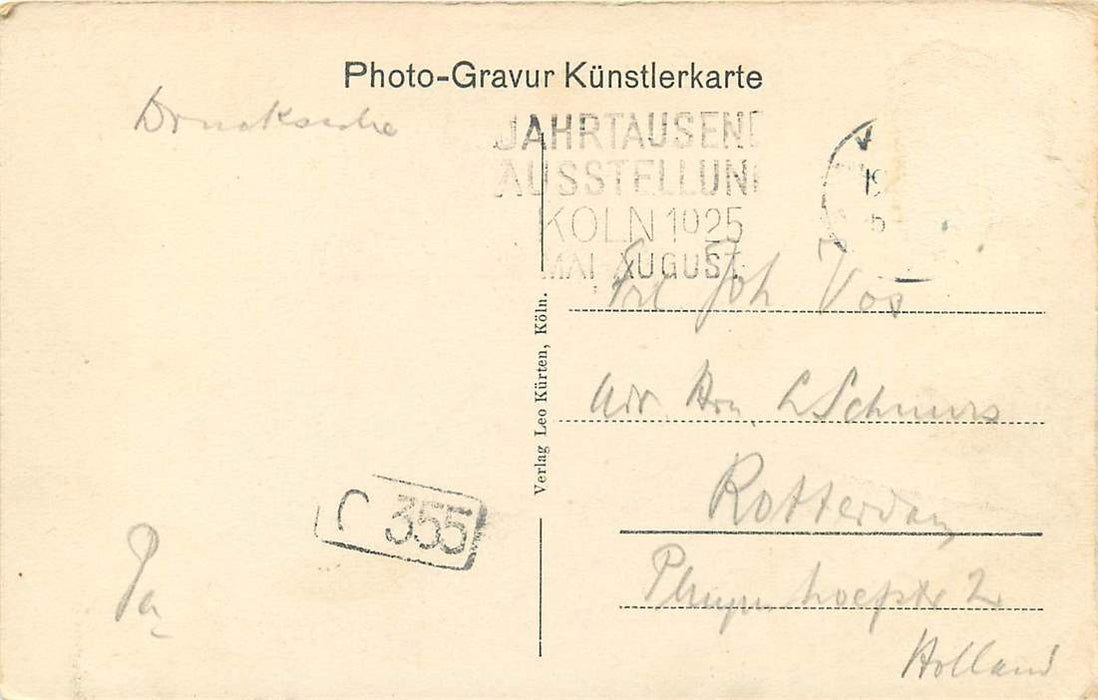 Photo-Gravur Künstlerkarte
Drucksache
JAHRTAUSEND
AUSSTELLUNG
KÖLN 1925
MAI-AUGUST
19
5
Frl Joh Vos
Adr. Hrn L Schuurs
Rotterdam
Holland
Verlag Leo Kürten, Köln.
C 355
Pa